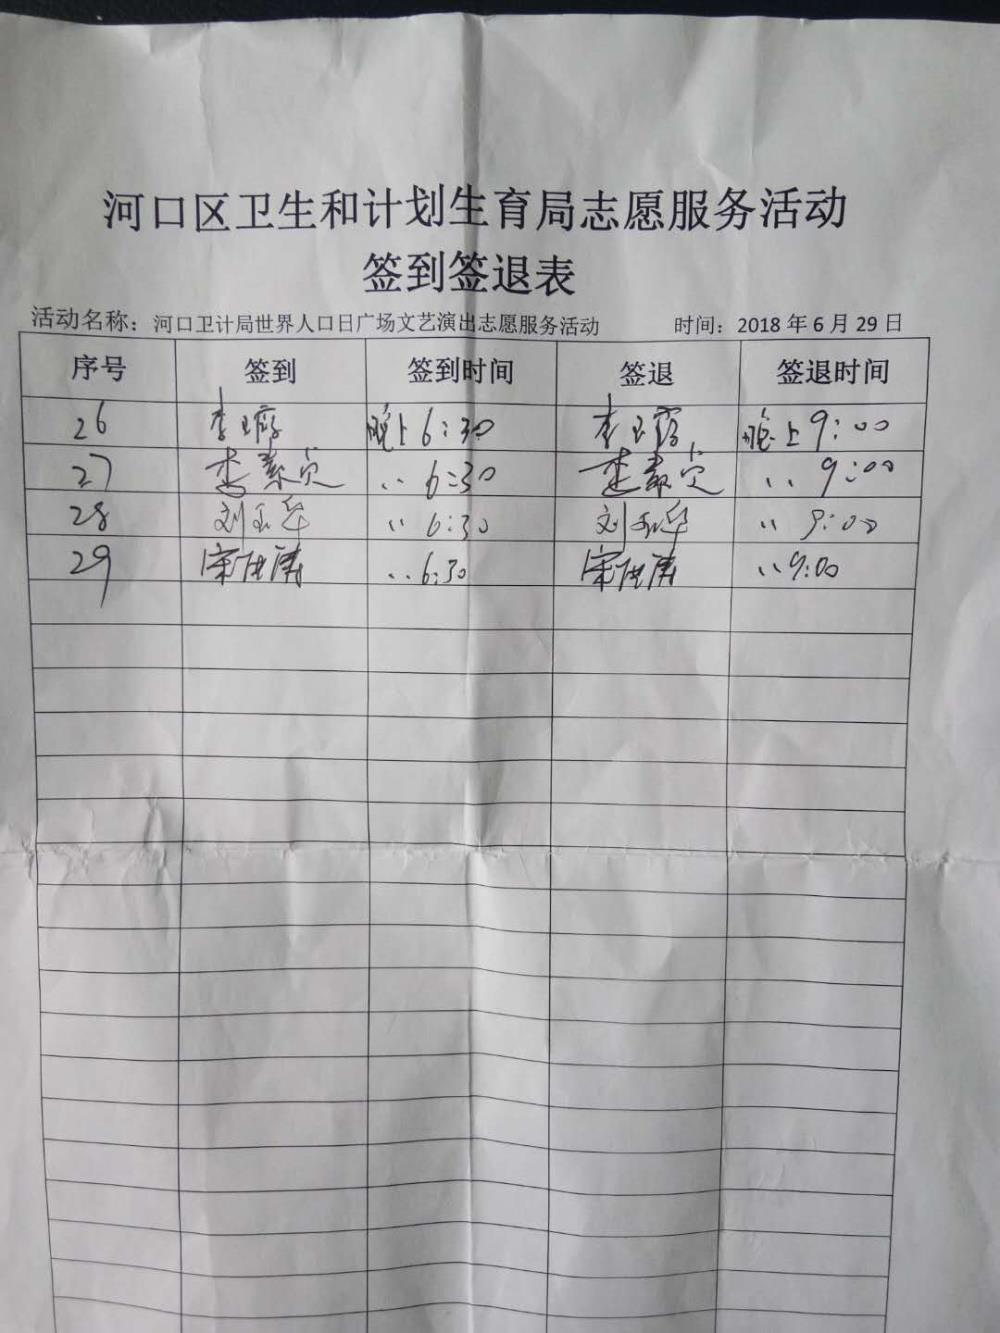 河口区卫生和计划生育局志愿服务活动
签到签退表
活动名称：河口卫计局世界人口日广场文艺演出志愿服务活动 时间：2018年6月29日
序号 签到 签到时间 签退 签退时间
26 李玉 晚上6:30 李玉 晚上9:00
27 李素贞 〃 6:30 李素贞 〃 9:00
28 刘玉华 〃 6:30 刘玉华 〃 9:00
29 宋洪涛 〃 6:30 宋洪涛 〃 9:00